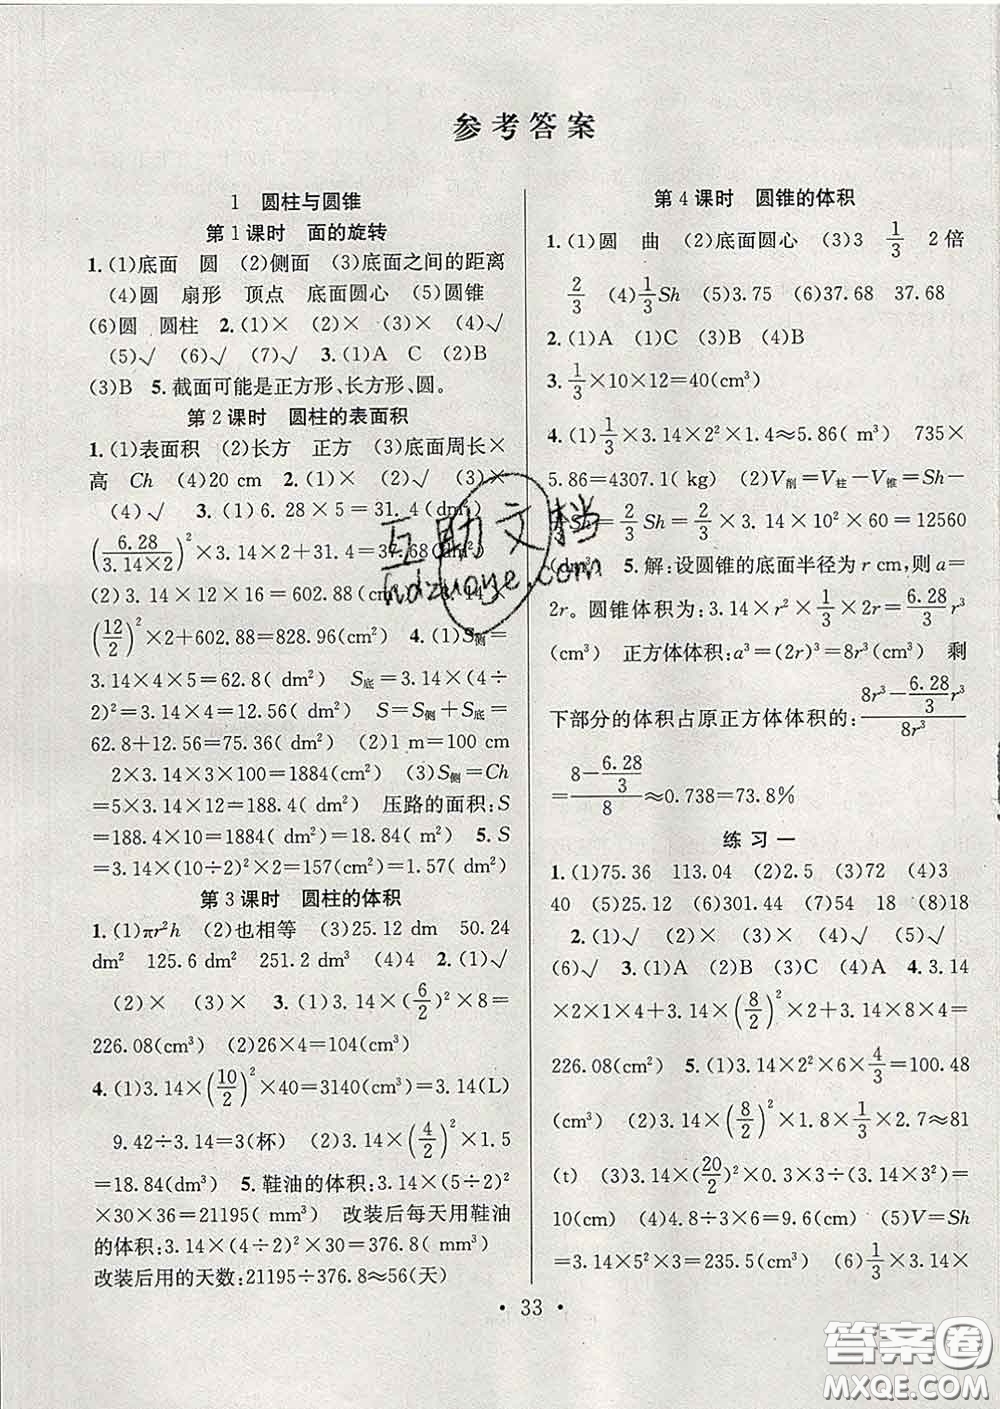 参考答案
1　圆柱与圆锥
第1课时　面的旋转
1.(1)底面　圆　(2)侧面　(3)底面之间的距离
(4)圆　扇形　顶点　底面圆心　(5)圆锥
(6)圆　圆柱　2.(1)×　(2)×　(3)×　(4)√
(5)√　(6)√　(7)√　3.(1)A　C　(2)B
(3)B　5.截面可能是正方形、长方形、圆。
第2课时　圆柱的表面积
1.(1)表面积　(2)长方　正方　(3)底面周长×
高　Ch　(4)20 cm　2.(1)×　(2)√　(3)×
(4)√　3.(1)6.28×5=31.4(dm²)
(6.28/3.14×2)²×3.14×2+31.4=37.68(dm²)
(2)3.14×12×16=602.88(cm²)　3.14×
(12/2)²×2+602.88=828.96(cm²)　4.(1)S侧=
3.14×4×5=62.8(dm²)　S底=3.14×(4÷
2)²=3.14×4=12.56(dm²)　S=S侧+S底=
62.8+12.56=75.36(dm²)　(2)1 m=100 cm
2×3.14×3×100=1884(cm²)　(3)S侧=Ch
=3.14×5×12=188.4(dm²)　压路的面积:S
=188.4×10=1884(dm²)=18.84(m²)　5.S
=3.14×(10÷2)²×2=157(cm²)=1.57(dm²)
第3课时　圆柱的体积
1.(1)πr²h　(2)也相等　(3)25.12 dm　50.24
dm²　125.6 dm²　251.2 dm³　(4)4　2.(1)√
(2)×　(3)×　3.(1)3.14×(6/2)²×8=
226.08(cm³)　(2)26×4=104(cm³)
4.(1)3.14×(10/2)²×40=3140(cm³)=3.14(L)
9.42÷3.14=3(杯)　(2)3.14×(4/2)²×1.5
=18.84(dm³)　5.鞋油的体积:3.14×(5÷2)²
×30×36=21195(mm³)　改装后每天用鞋油
的体积:3.14×(4÷2)²×30=376.8(mm³)
改装后用的天数:21195÷376.8≈56(天)
第4课时　圆锥的体积
1.(1)圆　曲　(2)底面圆心　(3)3　1/3　2倍
2/3　(4)1/3Sh　(5)3.75　(6)37.68　37.68
2.(1)A　(1)C　(3)B　(4)B
3.1/3×10×12=40(cm³)
4.(1)1/3×3.14×2²×1.4≈5.86(m³)　735×
5.86=4307.1(kg)　(2)V削=V柱-V锥=Sh-
Sh=2/3Sh=2/3×3.14×10²×60=12560
(dm³)　5.解:设圆锥的底面半径为r cm,则a=
2r。圆锥体积为:3.14×r²×1/3×2r=6.28/3r³
(cm³)　正方体体积:a³=(2r)³=8r³(cm³)　剩
下部分的体积占原正方体体积的:(8r³-6.28/3r³)/8r³
=(8-6.28/3)/8≈0.738=73.8%
练习一
1.(1)75.36　113.04　(2)2.5　(3)72　(4)3
40　(5)25.12　(6)301.44　(7)54　18　(8)18
2.(1)√　(2)×　(3)×　(4)√　(5)√
(6)√　3.(1)A　(2)B　(3)C　(4)A　4.3.14
×2×1×4+3.14×(8/2)²×2+3.14×8×4=
226.08(cm²)　5.(1)3.14×2²×6×4/3=100.48
(cm³)　(2)3.14×(8/2)²×1.8×1/3×2.7≈81
(t)　(3)3.14×(20/2)²×0.3×3÷(3.14×3²)=
10(cm)　(4)4.8÷3×6=9.6(cm)　(5)V=Sh
=3.14×5²×3=235.5(cm³)　(6)1/3×3.14×
• 33 •
互助文档
hdzuoye.com
答案卷
MXQE.COM